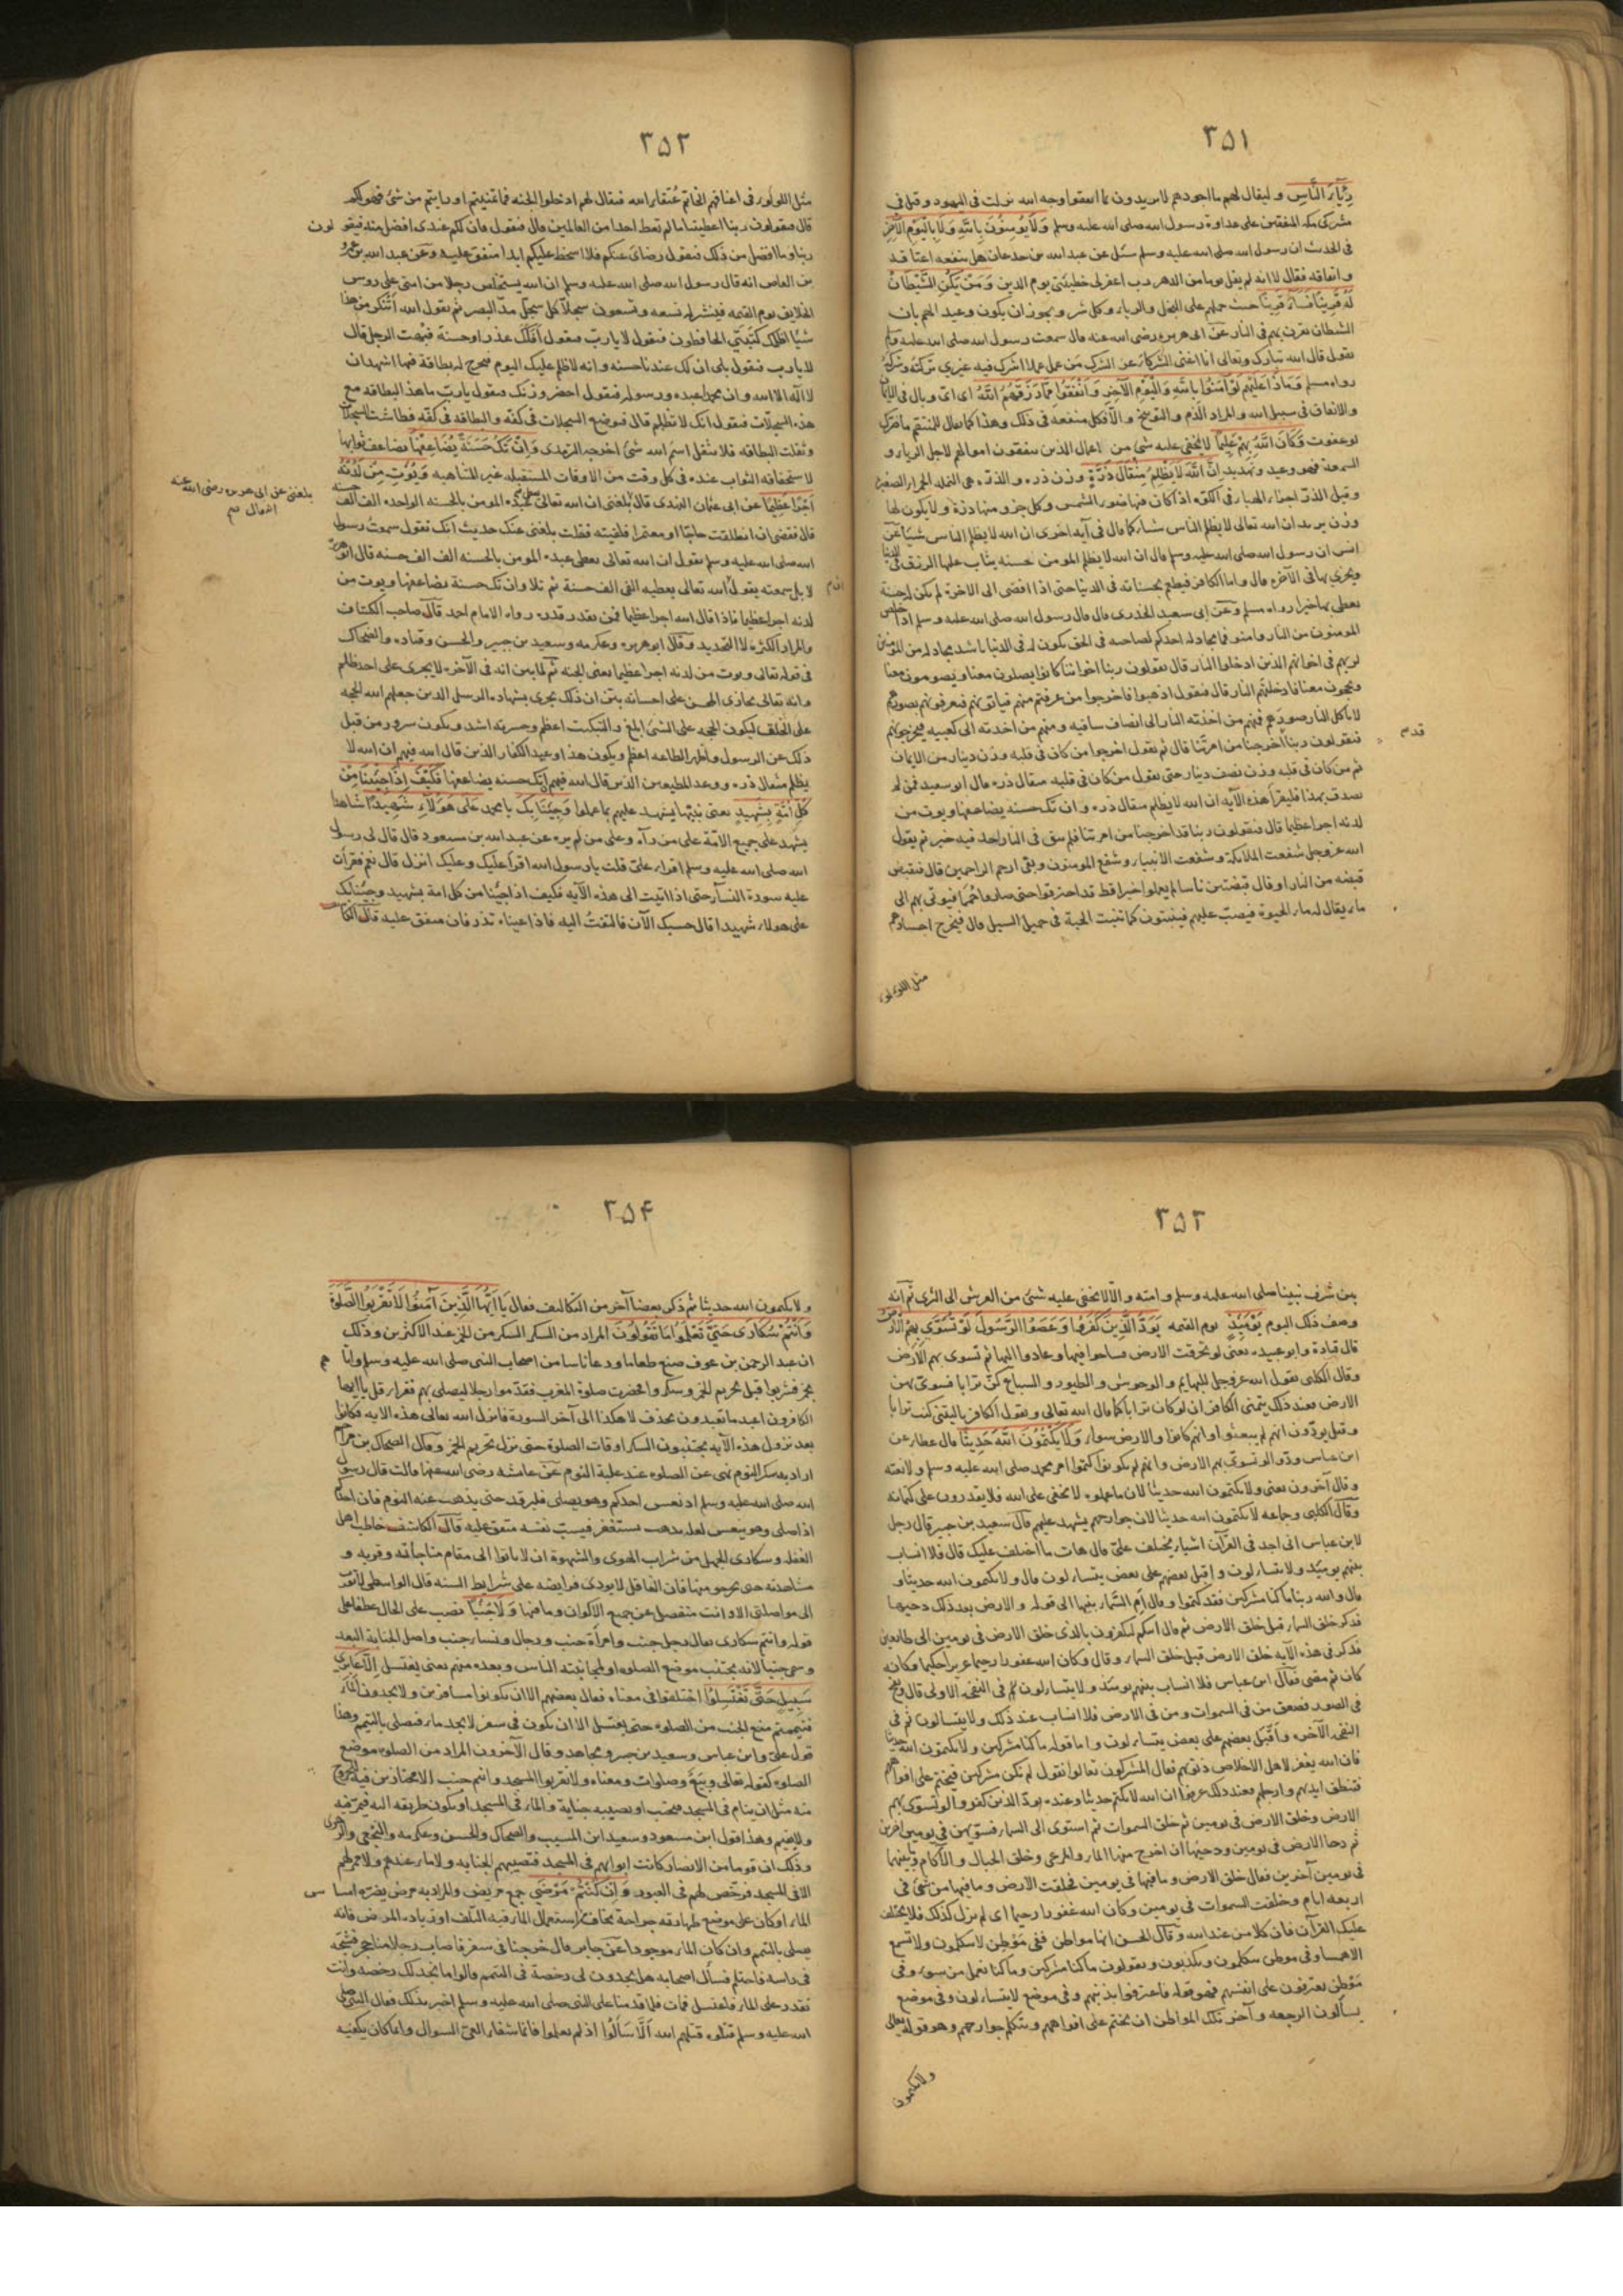 ٣٥١
رِئَاءَ النَّاسِ وليقال لهم ما اجودهم لا يريدون بما انفقوا وجه الله نزلت فى اليهود وقيل فى
مشركى مكه المنفقين على عداوة رسول الله صلى الله عليه وسلم وَلَا يُؤْمِنُونَ بِاللهِ وَلَا بِالْيَوْمِ الْآخِرِ
فى الحديث ان رسول الله صلى الله عليه وسلم سئل عن عبد الله بن جدعان هل ينفعه اعتاقه
وانفاقه فقال لا انه لم يقل يوما من الدهر رب اغفر لى خطيئتى يوم الدين وَمَنْ يَكُنِ الشَّيْطَانُ
لَهُ قَرِينًا فَسَاءَ قَرِينًا حيث حملهم على البخل والرياء وكل شر ويجوز ان يكون وعيد الهم بان
الشيطان يقرن بهم فى النار عن ابى هريره رضى الله عنه قال سمعت رسول الله صلى الله عليه وسلم
يقول قال الله تبارك وتعالى انا اغنى الشركاء عن الشرك من عمل عملا اشرك فيه غيرى تركته وشركه
رواه مسلم وَمَاذَا عَلَيْهِمْ لَوْ آمَنُوا بِاللهِ وَالْيَوْمِ الْآخِرِ وَأَنْفَقُوا مِمَّا رَزَقَهُمُ اللهُ اى اىّ وبال فى الايمان
والانفاق فى سبيل الله والمراد الذم والتوبيخ والا فكل منفعه فى ذلك وهذا كما يقال للمنتقم ما ضرك
لو عفوت وَكَانَ اللهُ بِهِمْ عَلِيمًا لا يخفى عليه شئ من اعمال الذين ينفقون اموالهم لاجل الرياء و
السمعة فهو وعيد وتهديد إِنَّ اللهَ لَا يَظْلِمُ مِثْقَالَ ذَرَّةٍ وزن ذره والذره هى النمله الحمراء الصغيره
وقيل الذر اجزاء الهباء فى الكوّه اذا كان فيها ضوء الشمس وكل جزو منها ذرة ولا يكون لها
وزن يريد ان الله تعالى لا يظلم الناس شيئا كما قال فى آيه اخرى ان الله لا يظلم الناس شيئا عن
انس ان رسول الله صلى الله عليه وسلم قال ان الله لا يظلم المومن حسنه يثاب عليها الرزق فى الدنيا
ويجزى بها فى الآخره قال واما الكافر فيطعم بحسناته فى الدنيا حتى اذا افضى الى الاخرة لم يكن له حسنة
يعطى بها خيرا رواه مسلم وعن ابى سعيد الخدرى قال قال رسول الله صلى الله عليه وسلم اذا خلص
المومنون من النار وامنوا فما مجادله احدكم لصاحبه فى الحق يكون له فى الدنيا باشد مجادله من المومنين
لربهم فى اخوانهم الذين ادخلوا النار قال يقولون ربنا اخواننا كانوا يصلون معنا ويصومون معنا
ويحجون معنا فادخلتهم النار قال فيقول اذهبوا فاخرجوا من عرفتم منهم فياتونهم فيعرفونهم بصورهم
لا تاكل النار صورهم فمنهم من اخذته النار الى انصاف ساقيه ومنهم من اخذته الى كعبيه فيخرجونهم
فيقولون ربنا اخرجنا من امرتنا قال ثم يقول اخرجوا من كان فى قلبه وزن دينار من الايمان
ثم من كان فى قلبه وزن نصف دينار حتى يقول من كان فى قلبه مثقال ذره قال ابو سعيد فمن لم
يصدق بهذا فليقرا هذه الآيه ان الله لا يظلم مثقال ذره وان تك حسنه يضاعفها ويوت من
لدنه اجرا عظيما قال فيقولون ربنا قد اخرجنا من امرتنا فلم يبق فى النار احد فيه خير ثم يقول
الله عز وجل شفعت الملائكة وشفعت الانبياء وشفع المومنون وبقى ارحم الراحمين قال فيقبض
قبضه من النار او قال قبضتين ناسا لم يعملوا خيرا قط قد احترقوا حتى صاروا حُمَمًا فيوتى بهم الى
ماء يقال له ماء الحيوة فيصبّ عليهم فينبتون كما تنبت الحبة فى حميل السيل قال فيخرج اجسادهم
مثل اللؤلؤ
قدم
٣٥٢
مثل اللولور فى اعناقهم الخاتم عتقاء الله فيقال لهم ادخلوا الجنه فما تمنيتم او رايتم من شئ فهو لكم
قال فيقولون ربنا اعطيتنا ما لم تعط احدا من العالمين قال فيقول فان لكم عندى افضل منه فيقو لون
ربنا وما افضل من ذلك فيقول رضائى عنكم فلا اسخط عليكم ابدا متفق عليه وعن عبد الله بن عمرو
بن العاص انه قال رسول الله صلى الله عليه وسلم ان الله يستخلص رجلا من امتى على روس
الخلايق يوم القيمه فينشر له تسعه وتسعون سجلّا كل سجلّ مدّ البصر ثم يقول الله أتنكر من هذا
شيًا اظلمك كتبتى الحافظون فيقول لا يا رب فيقول أفلك عذر او حسنة فبهت الرجل قال
لا يا رب فيقول بلى ان لك عندنا حسنه وانه لا ظلم عليك اليوم فيخرج له بطاقة فيها اشهد ان
لا اله الا الله وان محمدا عبده ورسوله فيقول احضر وزنك فيقول يا رب ما هذه البطاقه مع
هذه السجلات فيقول انك لا تظلم قال فيوضع السجلات فى كفه والبطاقه فى كفه فطاشت السجلات
وثقلت البطاقه فلا يثقل اسم الله شئ اخرجه الترمذى وَإِنْ تَكُ حَسَنَةً يُضَاعِفْهَا يضاعف ثوابها
لاستحقاقه الثواب عنده فى كل وقت من الاوقات المستقبله غير المتناهيه وَيُؤْتِ مِنْ لَدُنْهُ
أَجْرًا عَظِيمًا عن ابى عثمان النهدى قال بلغنى ان الله تعالى يعطى عبده المومن بالحسنه الواحده الف الف حسنه
قال فقضى ان انطلقت حاجّا او معتمرا فلقيته فقلت بلغنى عنك حديث انك تقول سمعت رسول
الله صلى الله عليه وسلم يقول ان الله تعالى يعطى عبده المومن بالحسنه الف الف حسنه قال ابو هريره
لا بل سمعته يقول الله تعالى يعطيه الفى الف حسنة ثم تلا وان تك حسنة يضاعفها ويوت من
لدنه اجرا عظيما فاذا قال الله اجرا عظيما فمن يقدر قدره رواه الامام احمد قال صاحب الكشاف
والمراد الكثرة لا التحديد وقال ابو هريره وعكرمه وسعيد بن جبير والحسن وقتاده والضحاك
فى قوله تعالى ويوت من لدنه اجرا عظيما يعنى الجنه ثم لما بين انه فى الآخره لا يجرى على احد ظلم
وانه تعالى يجازى المحسن على احسانه بين ان ذلك يجرى بشهادة الرسل الذين جعلهم الله الحجه
على الخلق ليكون الحجه على المسئ ابلغ والتبكيت اعظم وحسرته اشد ويكون سرور من قبل
ذلك عن الرسول واظهر الطاعه اعظم ويكون هذا وعيد الكفار الذين قال الله فيهم ان الله لا
يظلم مثقال ذره ووعد المطيعين الذين قال الله فيهم ان تك حسنه يضاعفها فَكَيْفَ إِذَا جِئْنَا مِنْ
كُلِّ أُمَّةٍ بِشَهِيدٍ يعنى نبيّها يشهد عليهم بما عملوا وَجِئْنَا بِكَ يا محمد عَلَى هَؤُلَاءِ شَهِيدًا شاهدا
يشهد على جميع الامّة على من رآه وعلى من لم يره عن عبد الله بن مسعود قال قال لى رسول
الله صلى الله عليه وسلم اقراء علىّ قلت يا رسول الله اقرا عليك وعليك انزل قال نعم فقرأت
عليه سورة النساء حتى اذا اتيت الى هذه الآيه فكيف اذا جئنا من كل امة بشهيد وجئنا بك
على هولاء شهيدا قال حسبك الآن فالتفت اليه فاذا عيناه تذرفان متفق عليه قال الكاشف
بلغنى عن ابى هريره رضى الله عنه
انه قال
٣٥٣
بين شرف نبينا صلى الله عليه وسلم وامته والا لا يخفى عليه شئ من العرش الى الثرى ثم انه
وصف ذلك اليوم يَوْمَئِذٍ يوم القيمه يَوَدُّ الَّذِينَ كَفَرُوا وَعَصَوُا الرَّسُولَ لَوْ تُسَوَّى بِهِمُ الْأَرْضُ
قال قتادة وابو عبيده يعنى لو تخرقت الارض فساخوا فيها وعادوا اليها ثم تسوى بهم الارض
وقال الكلبى يقول الله عز وجل للبهايم والوحوش والطيور والسباع كنّ ترابا فتسوى بهن
الارض فعند ذلك يتمنى الكافر ان لو كان ترابا كما قال الله تعالى ويقول الكافر يا ليتنى كنت ترابا
وقيل يودّون انهم لم يبعثوا وانهم كانوا والارض سواء وَلَا يَكْتُمُونَ اللهَ حَدِيثًا قال عطاء عن
ابن عباس ودّوا لو تسوى بهم الارض وانهم لم يكونوا كتموا امر محمد صلى الله عليه وسلم ولا نعته
وقال آخرون يعنى ولا يكتمون الله حديثا لان ما عملوه لا يخفى على الله فلا يقدرون على كتمانه
وقال الكلبى وجماعه لا يكتمون الله حديثا لان جوارحهم يشهد عليهم قال سعيد بن جبير قال رجل
لابن عباس انى اجد فى القرآن اشياء يختلف علىّ قال هات ما اختلف عليك قال فلا انساب
بينهم يومئذ ولا يتساءلون واقبل بعضهم على بعض يتساءلون قال ولا يكتمون الله حديثا و
قال والله ربنا ما كنا مشركين فقد كتموا وقال أم السماء بنيها الى قوله والارض بعد ذلك دحيها
فذكر خلق السماء قبل خلق الارض ثم قال ائنكم لتكفرون بالذى خلق الارض فى يومين الى طايعين
فذكر فى هذه الآيه خلق الارض قبل خلق السماء وقال وكان الله غفورا رحيما عزيزا حكيما وكانه
كان ثم مضى فقال ابن عباس فلا انساب بينهم يومئذ ولا يتساءلون ثم فى النفخه الاولى قال ونفخ
فى الصور فصعق من فى السموات ومن فى الارض فلا انساب عند ذلك ولا يتسالون ثم فى
النفخه الآخره واقبل بعضهم على بعض يتساءلون واما قوله ما كنا مشركين ولا يكتمون الله حديثا
فان الله يغفر لاهل الاخلاص ذنوبهم فقال المشركون تعالوا نقول لم نكن مشركين فيختم على افواههم
فتنطق ايديهم وارجلهم فعند ذلك عرفوا ان الله لا يكتم حديثا وعنده يودّ الذين كفروا لو تسوى بهم
الارض وخلق الارض فى يومين ثم خلق السموات ثم استوى الى السماء فسويهن فى يومين آخرين
ثم دحا الارض فى يومين ودحيها ان اخرج منها الماء والمرعى وخلق الجبال والآكام وما بينهما
فى يومين آخرين فقال خلق الارض وما فيها فى يومين فخلقت الارض وما فيها من شئ فى
اربعه ايام وخلقت السموات فى يومين وكان الله غفورا رحيما اى لم يزل كذلك فلا يختلف
عليك القرآن فان كلا من عند الله وقال الحسن انها مواطن ففى موطن لا يتكلمون ولا تسمع
الا همسا وفى موطن يتكلمون ويكذبون ويقولون ما كنا مشركين وما كنا نعمل من سوء وفى
موطن يعترفون على انفسهم فهو قوله فاعترفوا بذنبهم وفى موضع لا يتساءلون وفى موضع
يسألون الرجعه وآخر تلك المواطن ان يختم على افواههم وتتكلم جوارحهم وهو قوله تعالى
ولا يكتمون
٣٥۴
ولا يكتمون الله حديثا ثم ذكر بعضا آخر من التكاليف فقال يَا أَيُّهَا الَّذِينَ آمَنُوا لَا تَقْرَبُوا الصَّلٰوةَ
وَأَنْتُمْ سُكَارَى حَتَّى تَعْلَمُوا مَا تَقُولُونَ المراد من السكر السكر من الخمر عند الاكثرين وذلك
ان عبد الرحمن بن عوف صنع طعاما ودعا ناسا من اصحاب النبى صلى الله عليه وسلم واتا هم
بخمر فشربوا قبل تحريم الخمر وسكروا فحضرت صلوة المغرب فقدموا رجلا ليصلى بهم فقراء قل يا ايها
الكافرون اعبد ما تعبدون بحذف لا هكذا الى آخر السورة فانزل الله تعالى هذه الآيه فكانوا
بعد نزول هذه الآيه يجتنبون السكر اوقات الصلوة حتى نزل تحريم الخمر وقال الضحاك بن مزاحم
اراد به سكر النوم نهى عن الصلوة عند غلبة النوم عن عائشه رضى الله عنها قالت قال رسول
الله صلى الله عليه وسلم اذ نعس احدكم وهو يصلى فليرقد حتى يذهب عنه النوم فان احدكم
اذا صلى وهو ينعس لعله يذهب يستغفر فيسبّ نفسه متفق عليه قال الكاشف خاطب اهل
الغفله وسكارى الجهل من شراب الهوى والشهوة ان لا ياتوا الى مقام مناجاته وقربه و
مشاهدته حتى يخرجو منها فان الغافل لا يودى فرايضه على شرايط السنه قال الواسطى لا تقرّب
الى مواصلتى الا وانت منفصل عن جميع الاكوان وما فيها وَلَا جُنُبًا نصب على الحال عطفا على
قوله وانتم سكارى يقال رجل جنب وامرأة جنب ورجال ونساء جنب واصل الجنابة البعد
وسمى جنبا لانه يجتنب موضع الصلوه او لمجانبته الناس وبعده منهم يعنى يغتسل إِلَّا عَابِرِي
سَبِيلٍ حَتَّى تَغْتَسِلُوا اختلفوا فى معناه فقال بعضهم الا ان تكونوا مسافرين ولا تجدون الماء
فتيمموا منع الجنب من الصلوه حتى يغتسل الا ان يكون فى سفر لا يجد ماء فيصلى بالتيمم وهذا
قول علىّ وابن عباس وسعيد بن جبير ومجاهد وقال الآخرون المراد من الصلوه موضع
الصلوه كقوله تعالى وبيع وصلوات ومعناه ولا تقربوا المسجد وانتم جنب الا مجتازين فيه للخروج
منه مثل ان ينام فى المسجد فيجنب او يصيبه جنابة والماء فى المسجد او يكون طريقه اليه فيمرّ فيه
ولا يقيم وهذا قول ابن مسعود وسعيد ابن المسيب والضحاك والحسن وعكرمه والنخعى والزهرى
وذلك ان قوما من الانصار كانت ابوابهم فى المسجد فتصيبهم الجنابه ولا ماء عندهم ولا ممر لهم
الا فى المسجد فرخّص لهم فى العبور وَإِنْ كُنْتُمْ مَرْضَى جمع مريض والمراد به مرض يضره امسا س
الماء او كان على موضع طهارته جراحة يخاف من استعمال الماء فيه التلف او زياده المرض فانه
يصلى بالتيمم وان كان الماء موجودا عن جابر قال خرجنا فى سفر فاصاب رجلا منا حجر فشجّه
فى راسه فاحتلم فسأل اصحابه هل تجدون لى رخصة فى التيمم قالوا ما نجد لك رخصه وانت
تقدر على الماء فاغتسل فمات فلما قدمنا على النبى صلى الله عليه وسلم اخبر بذلك فقال النبى صلى
الله عليه وسلم قتلوه قتلهم الله ألّا سألوا اذ لم يعلموا فانما شفاء العىّ السوال وانما كان يكفيه